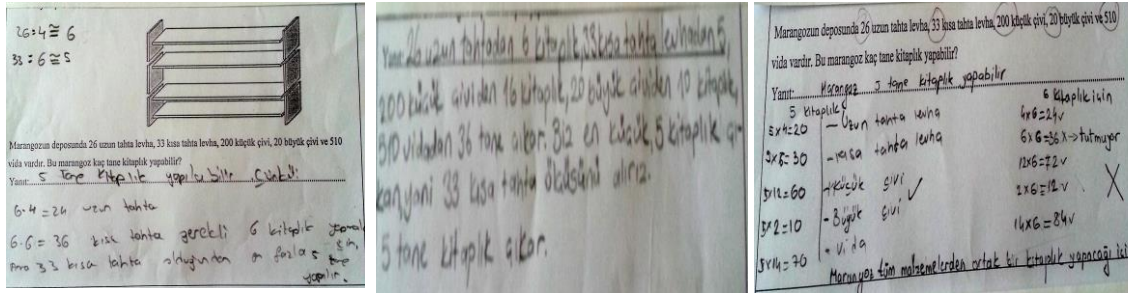 26:4≅6
33:6≅5
Marangozun deposunda 26 uzun tahta levha, 33 kısa tahta levha, 200 küçük çivi, 20 büyük çivi ve 510
vida vardır. Bu marangoz kaç tane kitaplık yapabilir?
Yanıt: 5 Tane Kitaplık yapılabilir Çünkü
6.4=24 uzun tahta
6.6=36 kısa tahta gerekli 6 kitaplık
Ama 33 kısa tahta olduğundan en fazla 5 tane
yapılır.
Yanıt: 26 uzun tahtadan 6 kitaplık, 33 kısa tahta levhadan 5,
200 küçük çividen 16 kitaplık, 20 büyük çividen 10 kitaplık,
510 vidadan 36 tane çıkar. Biz en küçük, 5 kitaplık çı-
kan yani 33 kısa tahta ölçüsünü alırız.
5 tane kitaplık çıkar.
Marangozun deposunda 26 uzun tahta levha, 33 kısa tahta levha, 200 küçük çivi, 20 büyük çivi ve 510
vida vardır. Bu marangoz kaç tane kitaplık yapabilir?
Yanıt: Marangoz 5 tane kitaplık yapabilir
5 kitaplık
5x4=20 - Uzun tahta levha
5x6=30 - kısa tahta levha
5x12=60 - Küçük çivi ✓
5x2=10 - Büyük çivi
5x14=70 - Vida
6 kitaplık için
4x6=24 ✓
6x6=36 X → tutmuyor
12x6=72 ✓
2x6=12 ✓
14x6=84 ✓
X
Marangoz tüm malzemelerden ortak bir kitaplık yapacağı için